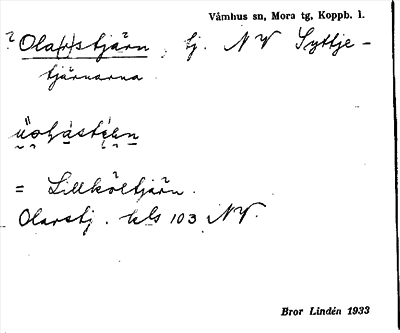 Våmhus sn, Mora tg, Koppb. l.
? Ola(r)stjärn, tj. NV Syttje-
tjärnarna.
= Lillköltjärn.
Olarstj. kls 103 NV.
Bror Lindén 1933